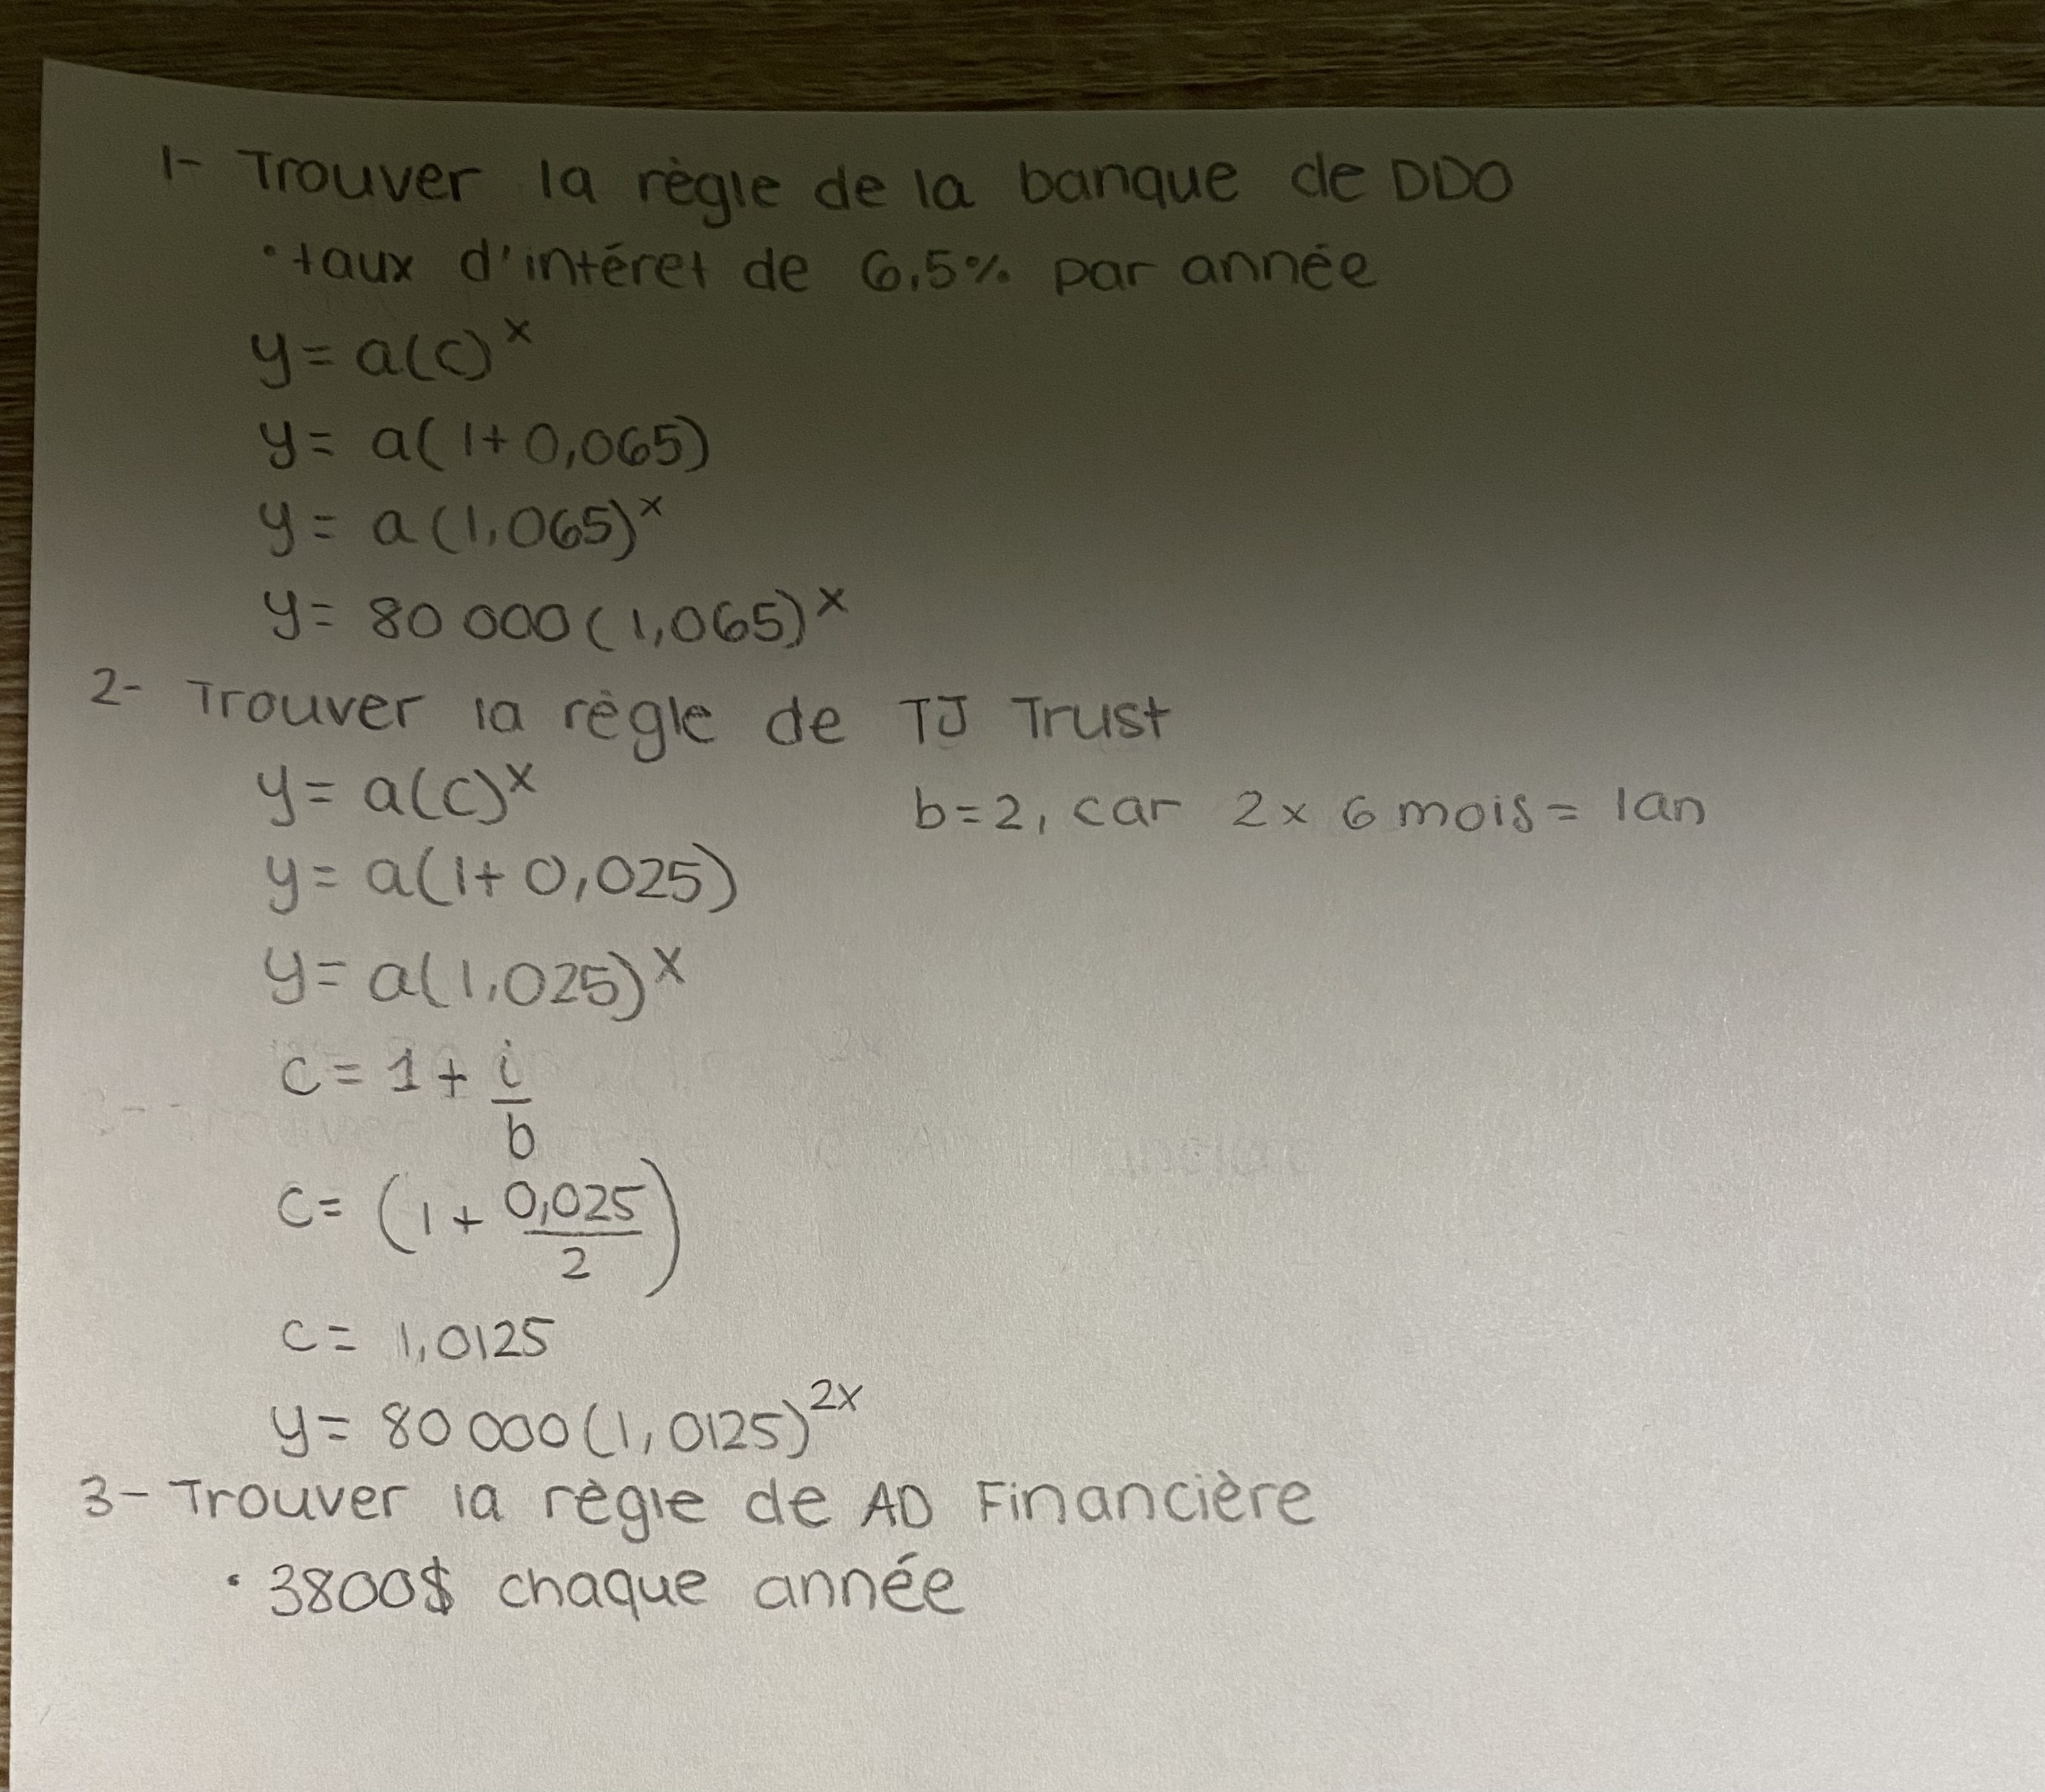 1- Trouver la règle de la banque de DDO
• taux d'intéret de 6,5% par année
y = a(c)^x
y = a(1+0,065)
y = a(1,065)^x
y = 80 000(1,065)^x
2- Trouver la règle de TJ Trust
y = a(c)^x b=2, car 2 x 6 mois = 1an
y = a(1+0,025)
y = a(1,025)^x
c = 1 + i/b
c = (1 + 0,025/2)
c = 1,0125
y = 80 000(1,0125)^2x
3- Trouver la règle de AD Financière
• 3800$ chaque année